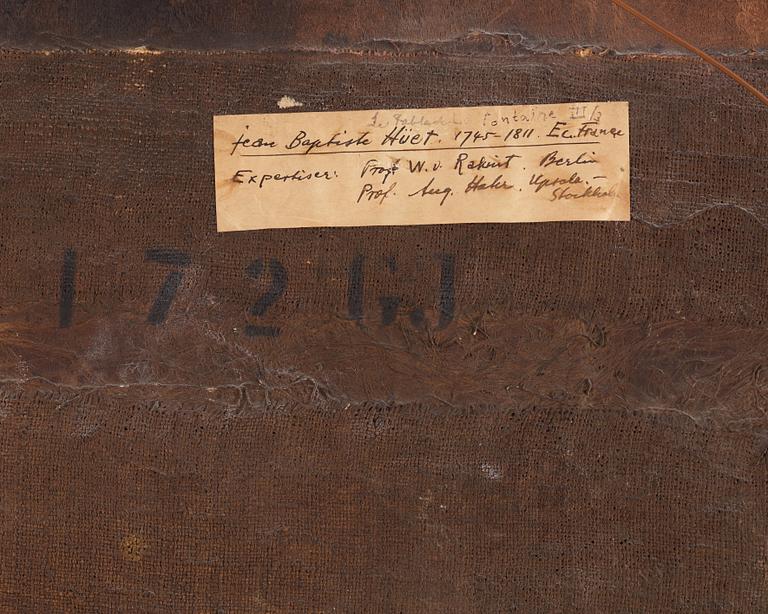 Fontaine III/3
Jean Baptiste Hüet. 1745-1811. Ec. France
Expertiser: Prof W. v. Berlin
Prof. Aug. Hahr. Upsala.-
Stockholm
172